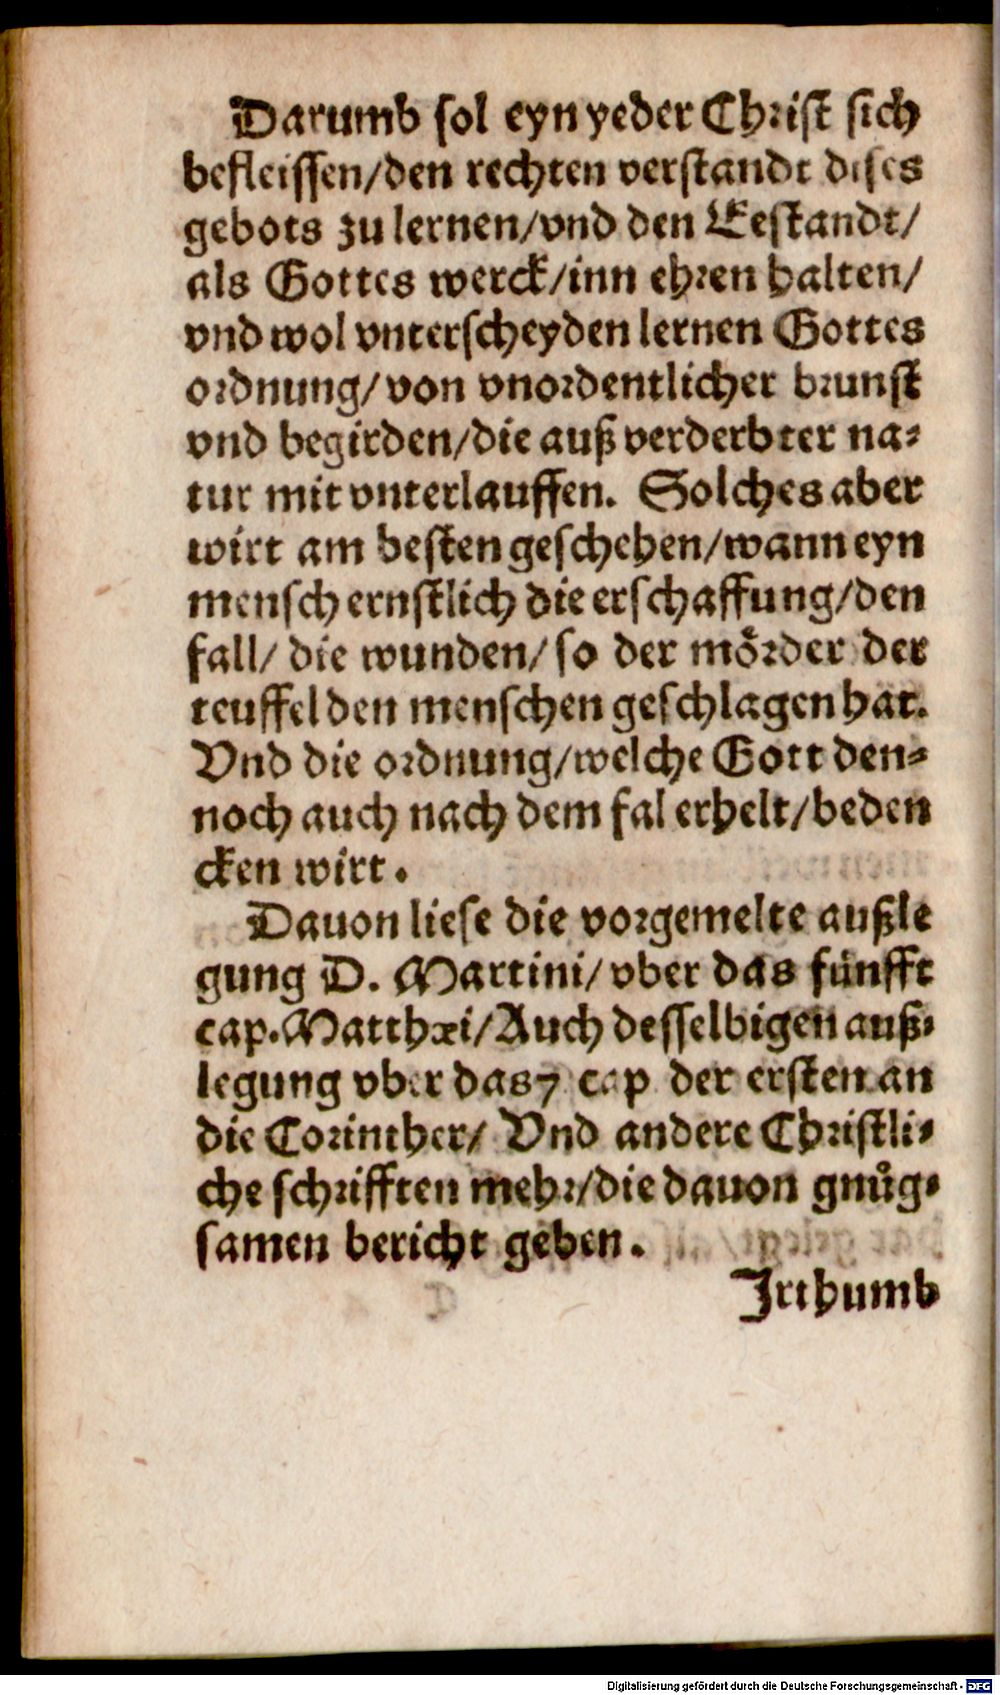 Darumb sol eyn yeder Christ sich
befleissen/den rechten verstandt dises
gebots zu lernen/vnd den Eestandt/
als Gottes werck/inn ehren halten/
vnd wol vnterscheyden lernen Gottes
ordnung/von vnordentlicher brunst
vnd begirden/die auß verderbter na-
tur mit vnterlauffen. Solches aber
wirt am besten geschehen/wann eyn
mensch ernstlich die erschaffung/den
fall/ die wunden/ so der mörder der
teuffel den menschen geschlagen hat.
Vnd die ordnung/welche Gott den-
noch auch nach dem fal erhelt/beden
cken wirt.
Dauon liese die vorgemelte außle
gung D. Martini/ vber das fünfft
cap. Matthæi/Auch desselbigen auß-
legung vber das 7 cap der ersten an
die Corinther/ Vnd andere Christli-
che schrifften mehr/die dauon gnůg-
samen bericht geben.
Irthumb
Digitalisierung gefördert durch die Deutsche Forschungsgemeinschaft - DFG